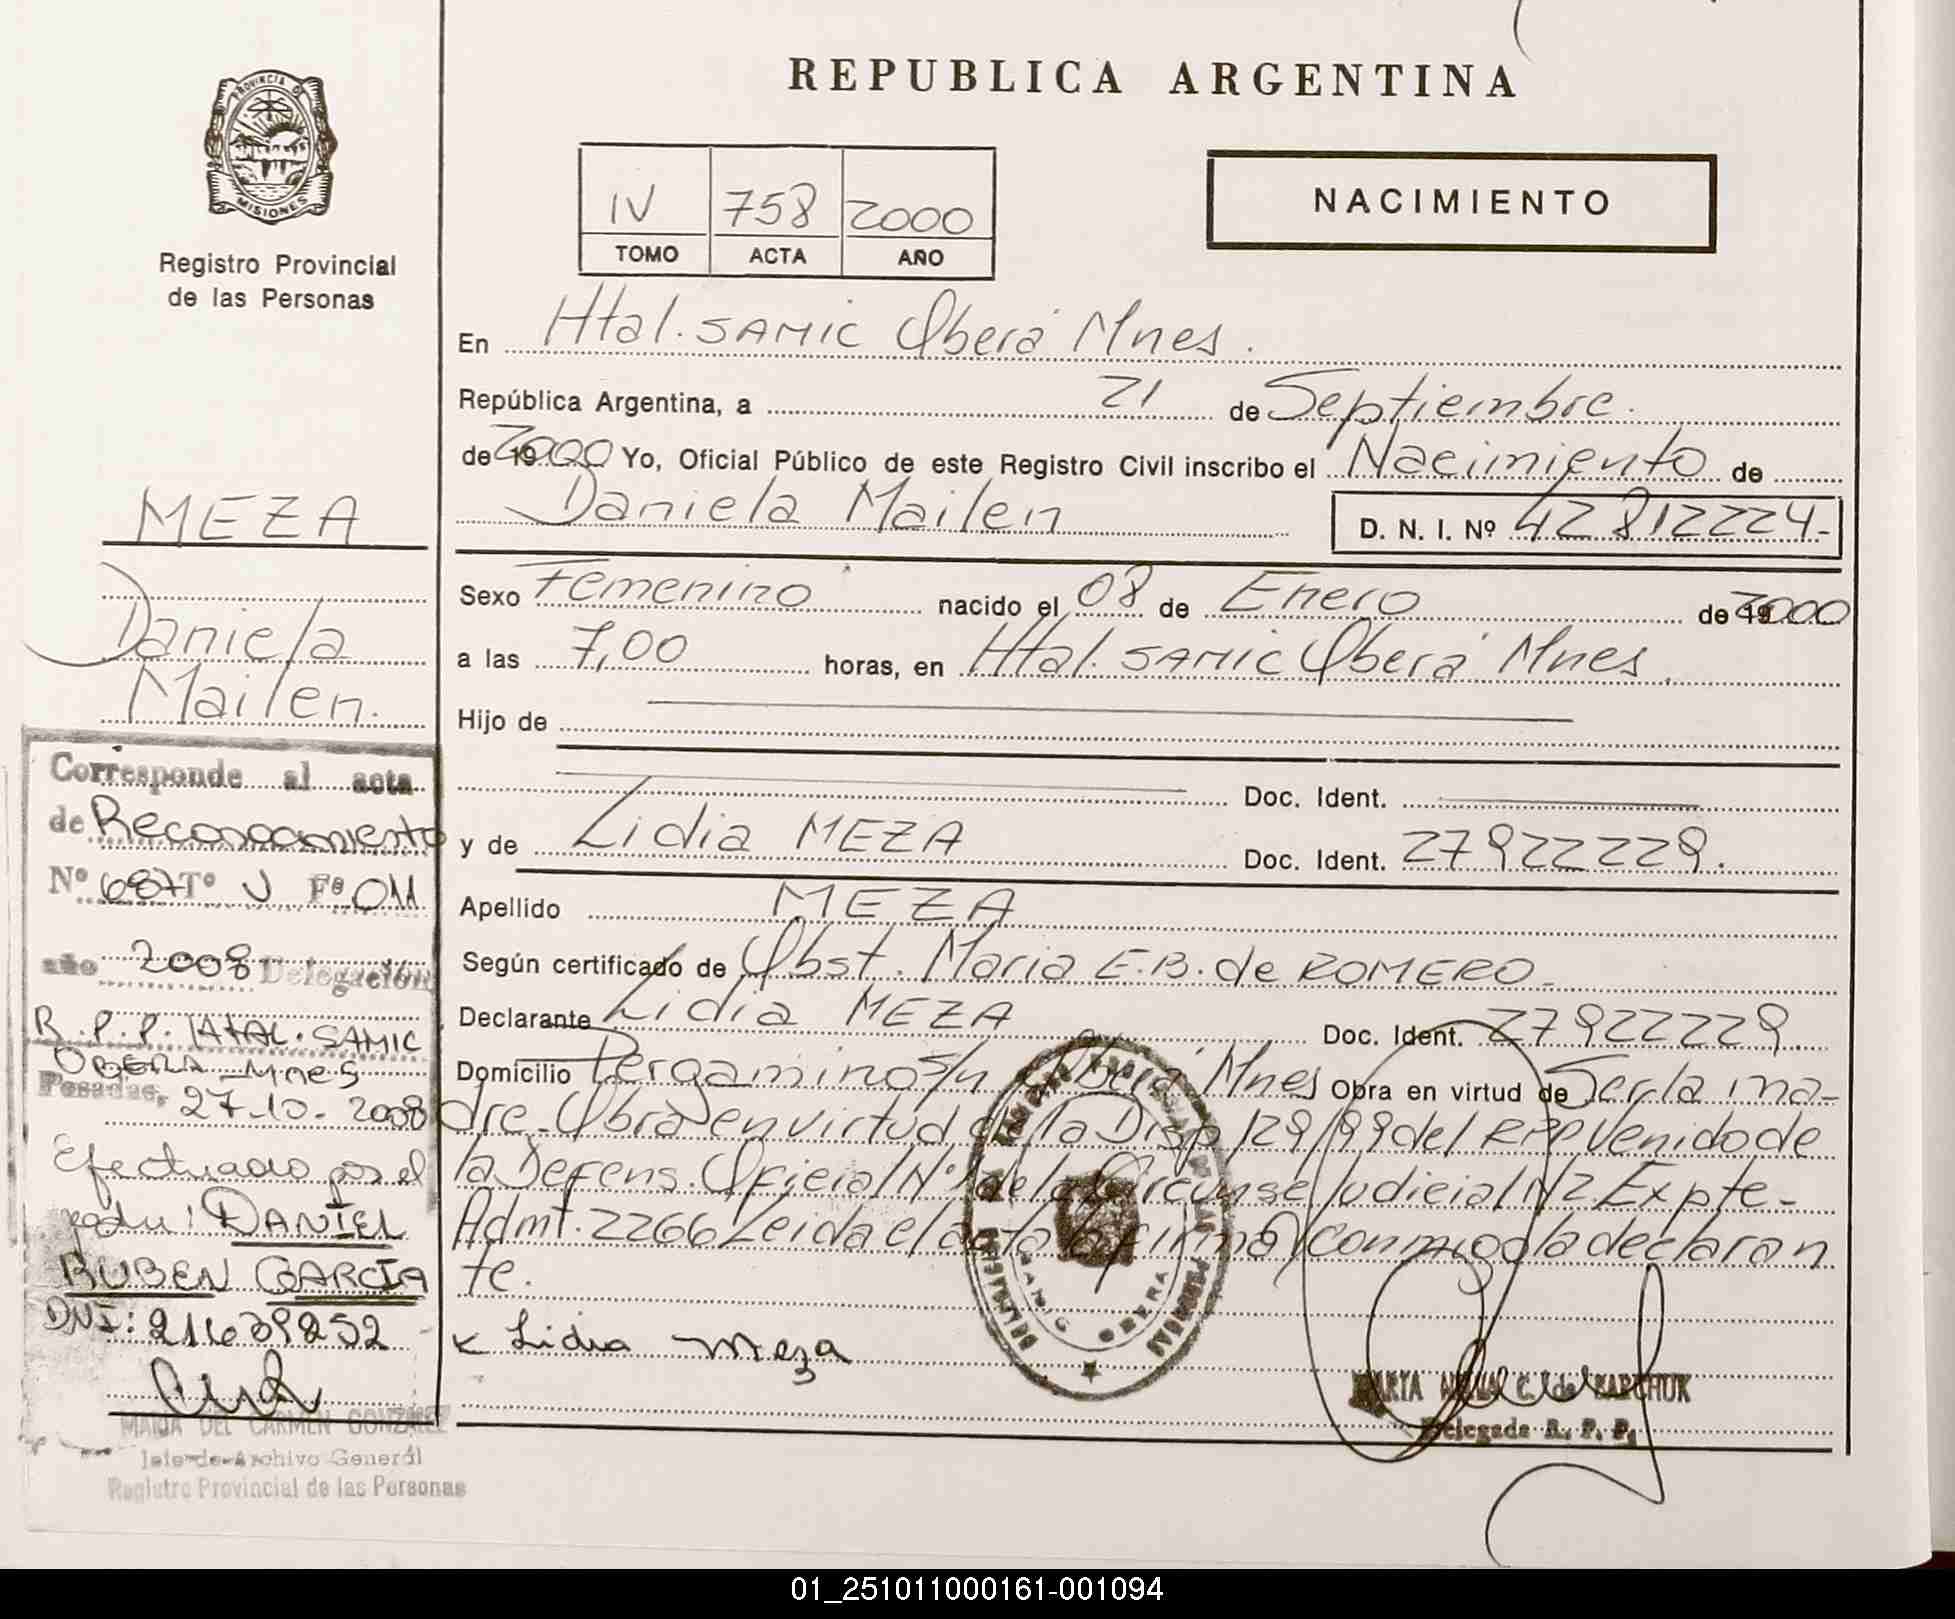 PROVINCIA DE
MISIONES
Registro Provincial
de las Personas
REPUBLICA ARGENTINA
IV 758 2000
TOMO ACTA AÑO
NACIMIENTO
En Htal. SAMIC Oberá Mnes.
República Argentina, a 21 de Septiembre.
de 19 2000 Yo, Oficial Público de este Registro Civil inscribo el Nacimiento de
Daniela Mailen D. N. I. Nº 42812224-
Sexo Femenino nacido el 08 de Enero de 19 2000
a las 7,00 horas, en Htal. SAMIC Oberá Mnes.
Hijo de
Doc. Ident.
y de Lidia MEZA Doc. Ident. 27922229.
Apellido MEZA
Según certificado de Obst. Maria E.B. de ROMERO.
Declarante Lidia MEZA Doc. Ident. 27922229.
Domicilio Pergamino s/n Oberá Mnes Obra en virtud de Ser la ma-
dre. Obra en virtud de la Disp 129/99 del RPP Venido de
la Defens. Oficial Nº1 de la Circunsc Judicial Nº2. Expte-
Admt. 2266 Leida el acta la firma conmigo la declaran
te.
x Lidia Meza
MARIA C. de KAPCHUK
Delegada R. P. P.
SAMIC OBERA
MEZA
Daniela
Mailen.
Corresponde al acta
de Reconocimiento
Nº 687 Tº V Fº 011
año 2008 Delegación
R.P.P. HTAL. SAMIC
OBERA - Mnes
Posadas, 27-10-2008
Efectuado por el
padre: DANIEL
RUBEN GARCÍA
DNI: 21639252
MARIA DEL CARMEN GONZALEZ
Jefe de Archivo General
Registro Provincial de las Personas
01_251011000161-001094